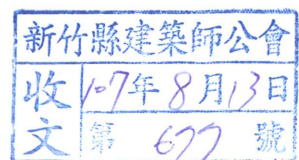 新竹縣建築師公會
收文 107年8月13日
第 677 號